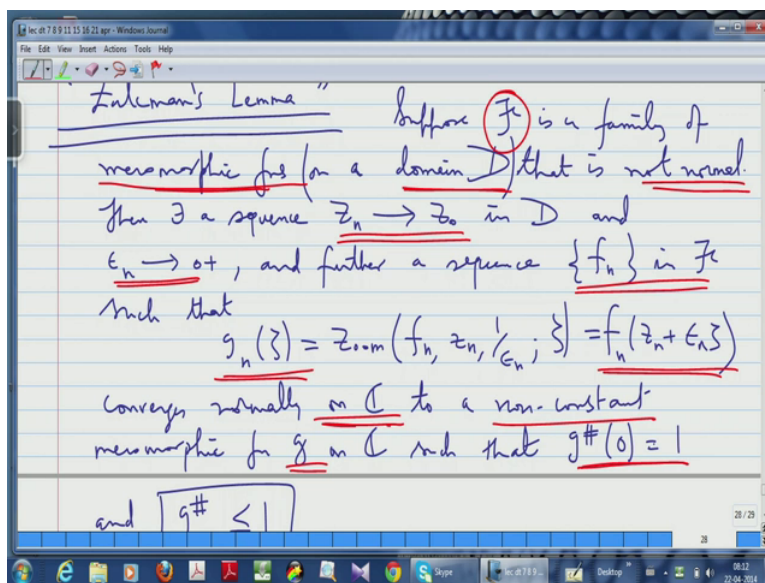 lec dt 7 8 9 11 15 16 21 apr - Windows Journal
File Edit View Insert Actions Tools Help
"Zalcman's Lemma" Suppose F is a family of
meromorphic fns (on a domain D) that is not normal.
Then ∃ a sequence Zn → Z0 in D and
εn → 0+, and further a sequence {fn} in F
such that
gn(ζ) = Zoom(fn, zn, 1/εn; ζ) = fn(zn + εnζ)
converges normally on ℂ to a non-constant
meromorphic fn g on ℂ such that g#(0) = 1
and g# ≤ 1
28 / 29
28
Skype
lec dt 7 8 9...
Desktop
08:12
22-04-2014